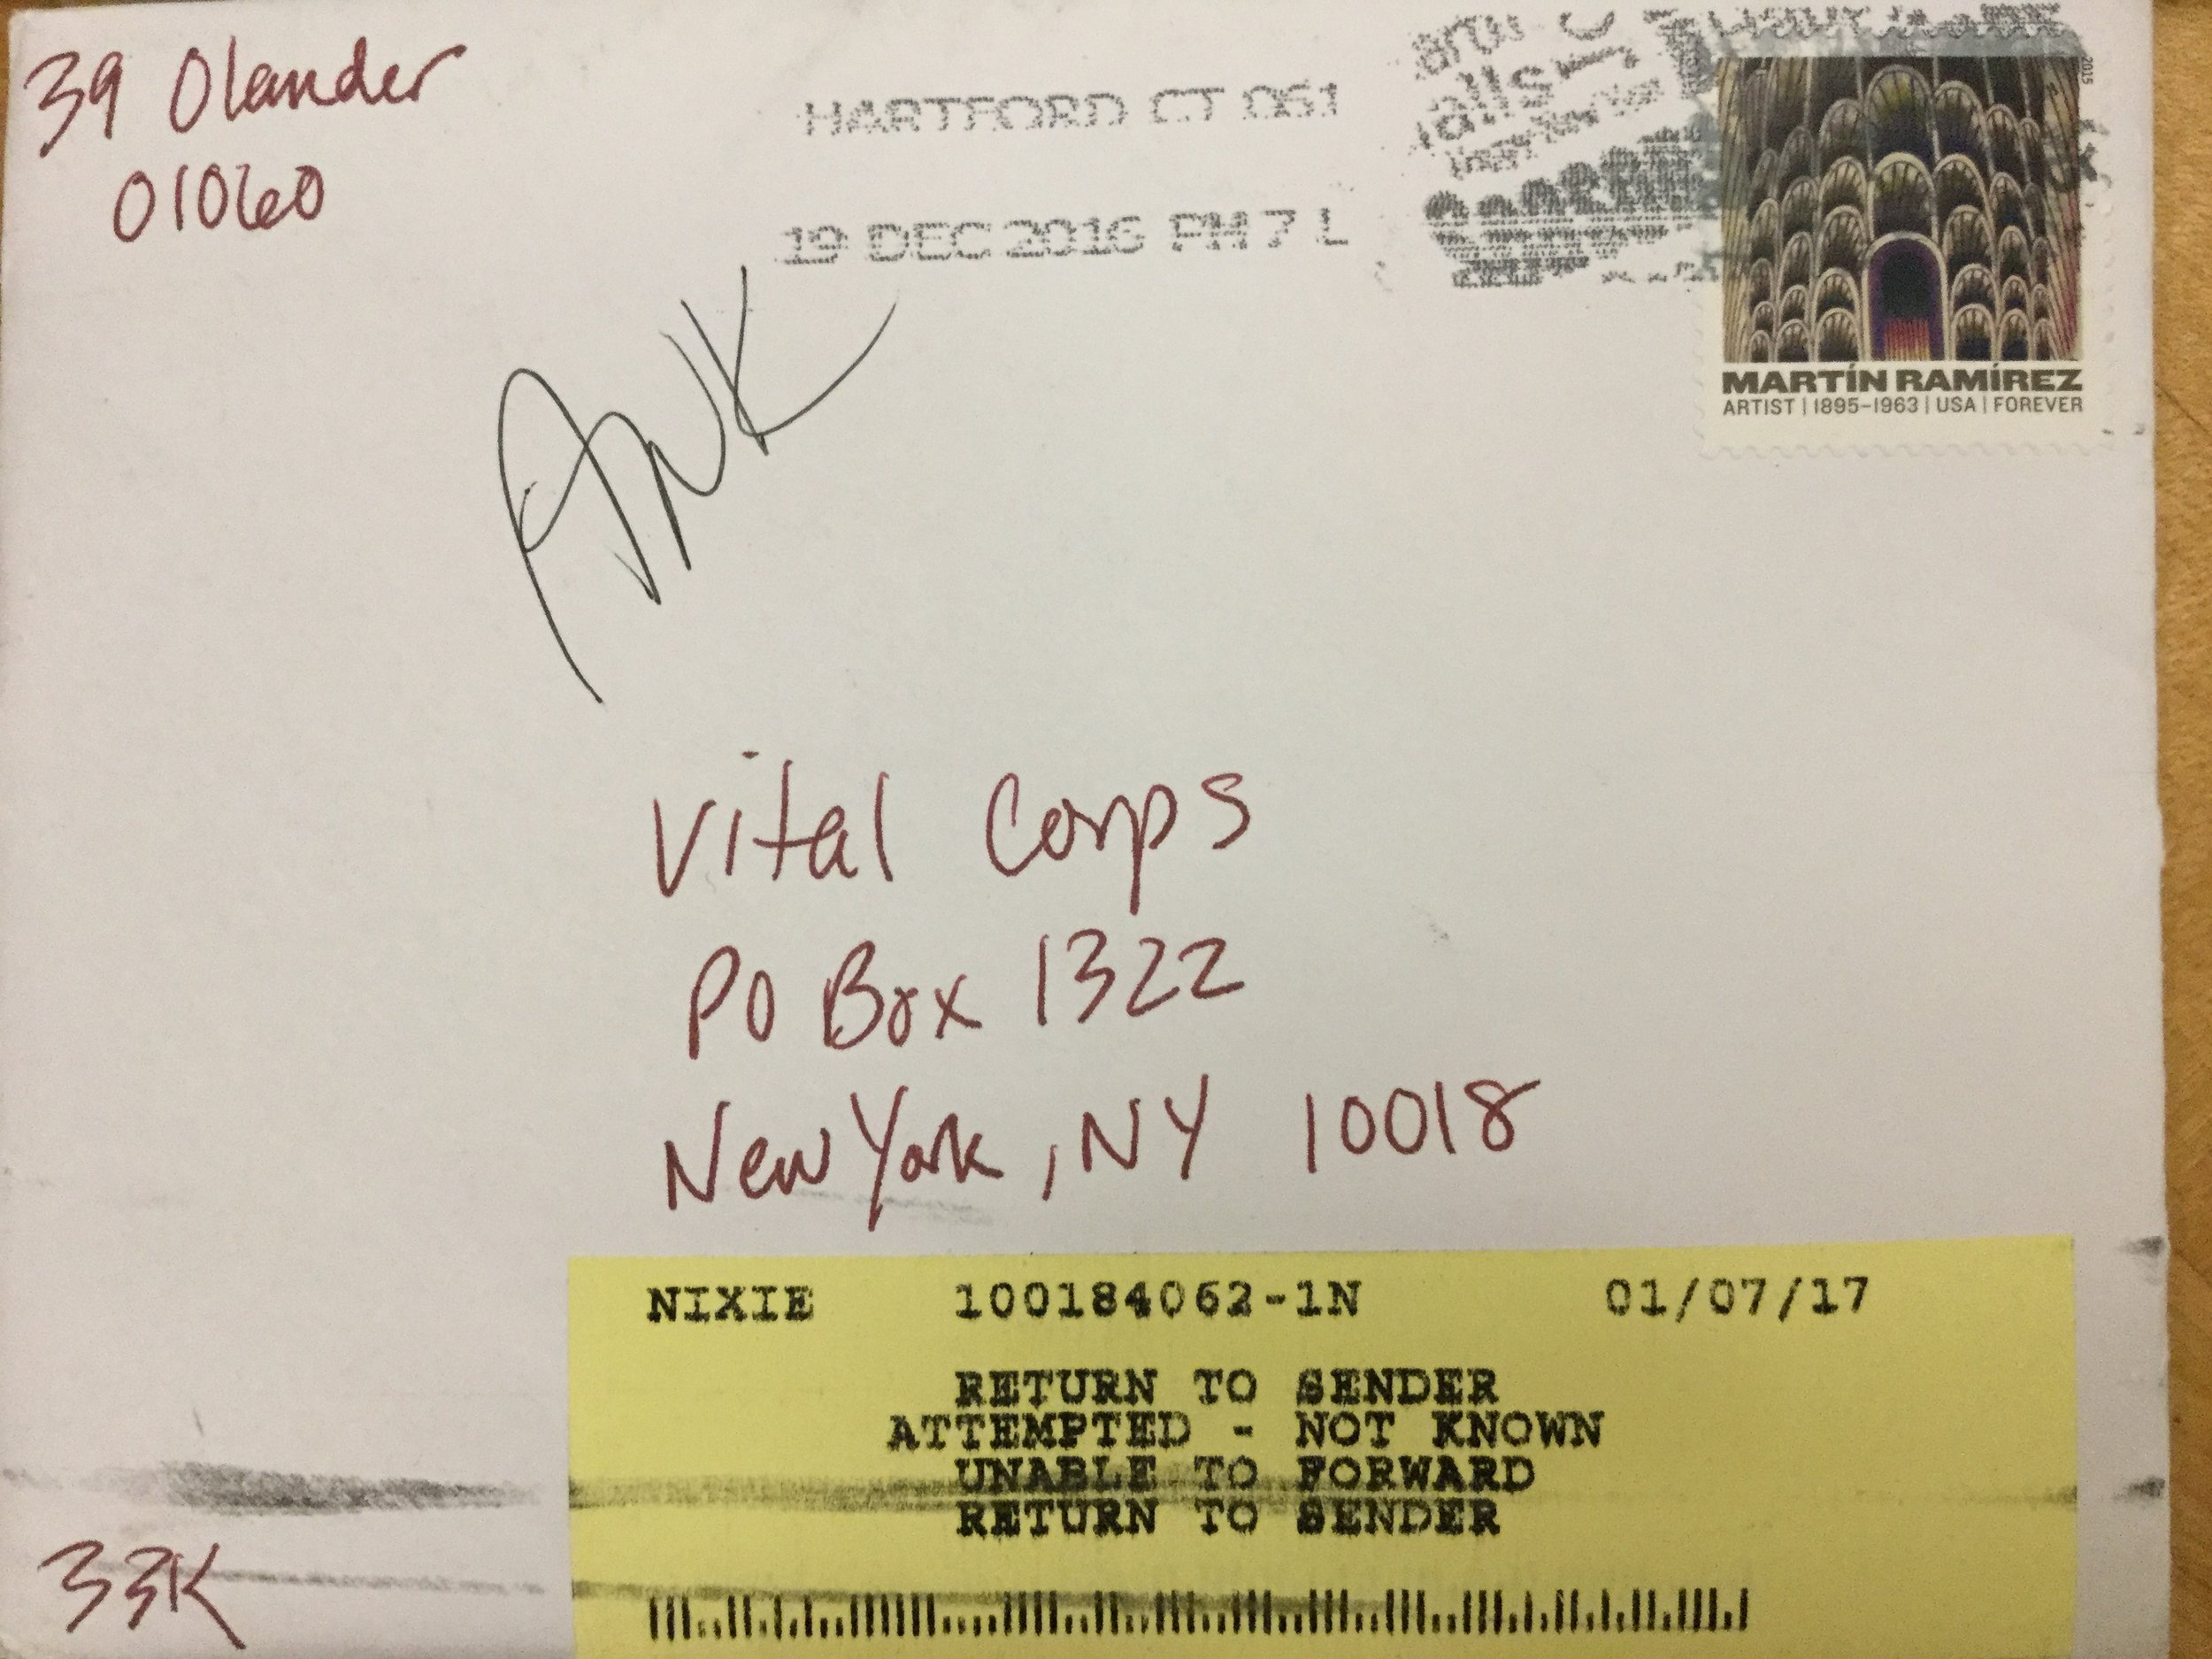 39 Olander
01060
HARTFORD CT 061
19 DEC 2016 PM 7 L
2015
MARTÍN RAMÍREZ
ARTIST | 1895–1963 | USA | FOREVER
ANK
Vital Corps
PO Box 1322
New York, NY 10018
NIXIE 100184062-1N 01/07/17
RETURN TO SENDER
ATTEMPTED - NOT KNOWN
UNABLE TO FORWARD
RETURN TO SENDER
33K